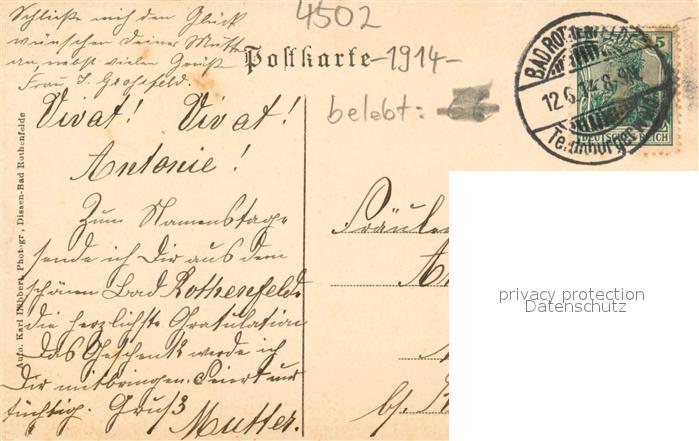 Schließe mich den Glück
wünschen Deiner Mutter
an, nebst vielen Grüßen
Frau J. Grossfeld.
4502
Postkarte -1914-
belebt:
BAD ROTHENFELDE
12.6.14.8-9N.
Teutoburger Wald
5
DEUTSCHES REICH
Vivat! Vivat!
Antonie!
Zum Namenstage
sende ich Dir aus dem
schönen Bad Rothenfelde
die herzlichste Gratulation
Das Geschenk werde ich
Dir mitbringen. Feiert nur
tüchtig. Gruß
Mutter.
Aufn. Karl Lübbert, Photogr., Dissen-Bad Rothenfelde
Fräulein
privacy protection
Datenschutz